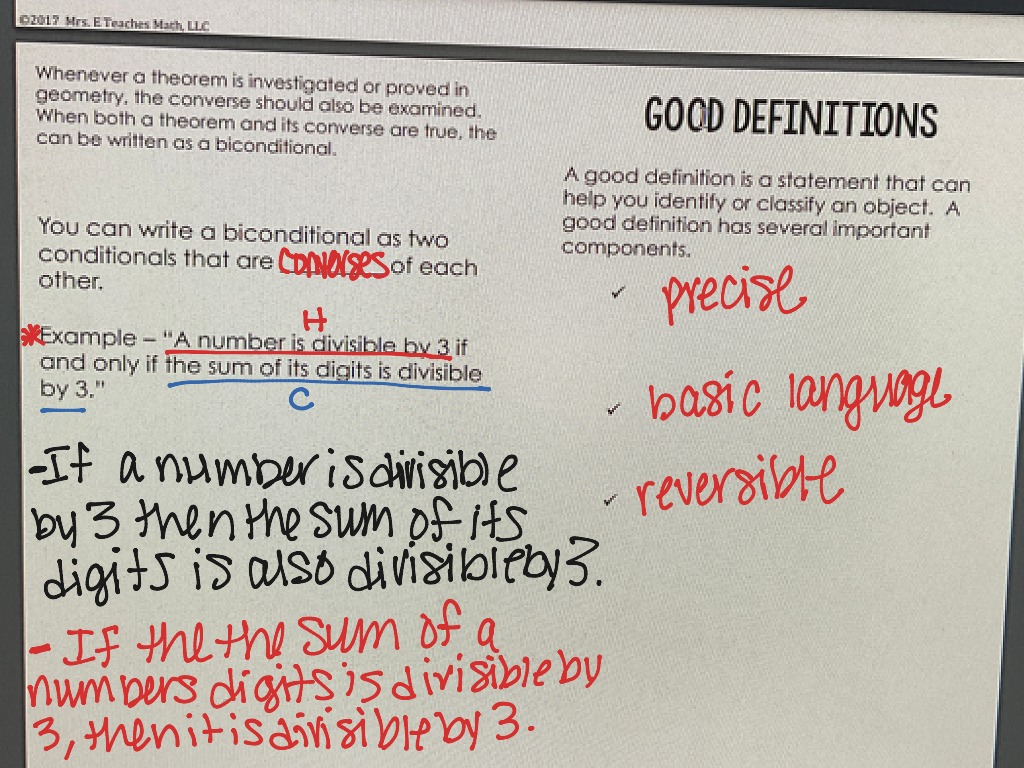 ©2017 Mrs. E Teaches Math, LLC
Whenever a theorem is investigated or proved in
geometry, the converse should also be examined.
When both a theorem and its converse are true, the
can be written as a biconditional.
You can write a biconditional as two
conditionals that are converses of each
other.
H
*Example – "A number is divisible by 3 if
and only if the sum of its digits is divisible
by 3."
C
-If a number is divisible
by 3 then the sum of its
digits is also divisible by 3.
- If the the sum of a
numbers digits is divisible by
3, then it is divisible by 3.
GOOD DEFINITIONS
A good definition is a statement that can
help you identify or classify an object. A
good definition has several important
components.
✓ precise
✓ basic language
✓ reversible